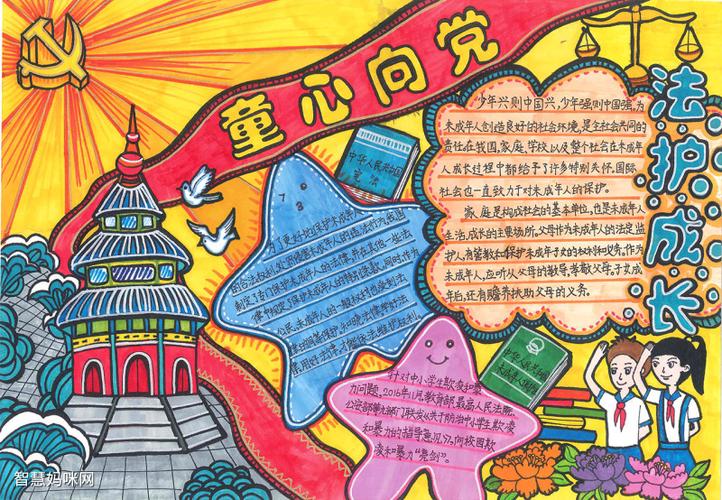 童心向党
法护成长
少年兴则中国兴,少年强则中国强,为
未成年人创造良好的社会环境,是全社会共同的
责任,在我国,家庭、学校以及整个社会在未成年
人成长过程中都给予了许多特别关怀。国际
社会也一直致力于对未成年人的保护。
家庭是构成社会的基本单位,也是未成年人
生活、成长的主要场所,父母作为未成年人的法定监
护人,有管教和保护未成年子女的权利和义务,作为
未成年人,应听从父母的教导,孝敬父母,子女成
年后,还有赡养扶助父母的义务。
中华人民共和国
宪法
为了更好地保护未成年
的合法权益,
制定了专门保护未成年人的法律,并在其他一些法
律中规定了保护未成年人的特别条款,同时,作为
公民,未成年人的一般权利也受到法
用好法律,才能依法维护权利
中华人民共和国
未成年人保护法
针对中小学生欺凌和暴
力问题,2016年11月教育部、最高人民法院、
公安部等九部门联合发从关于防治中小学生欺凌
和暴力的指导意见》,向校园欺
凌和暴力“亮剑”。
智慧妈咪网